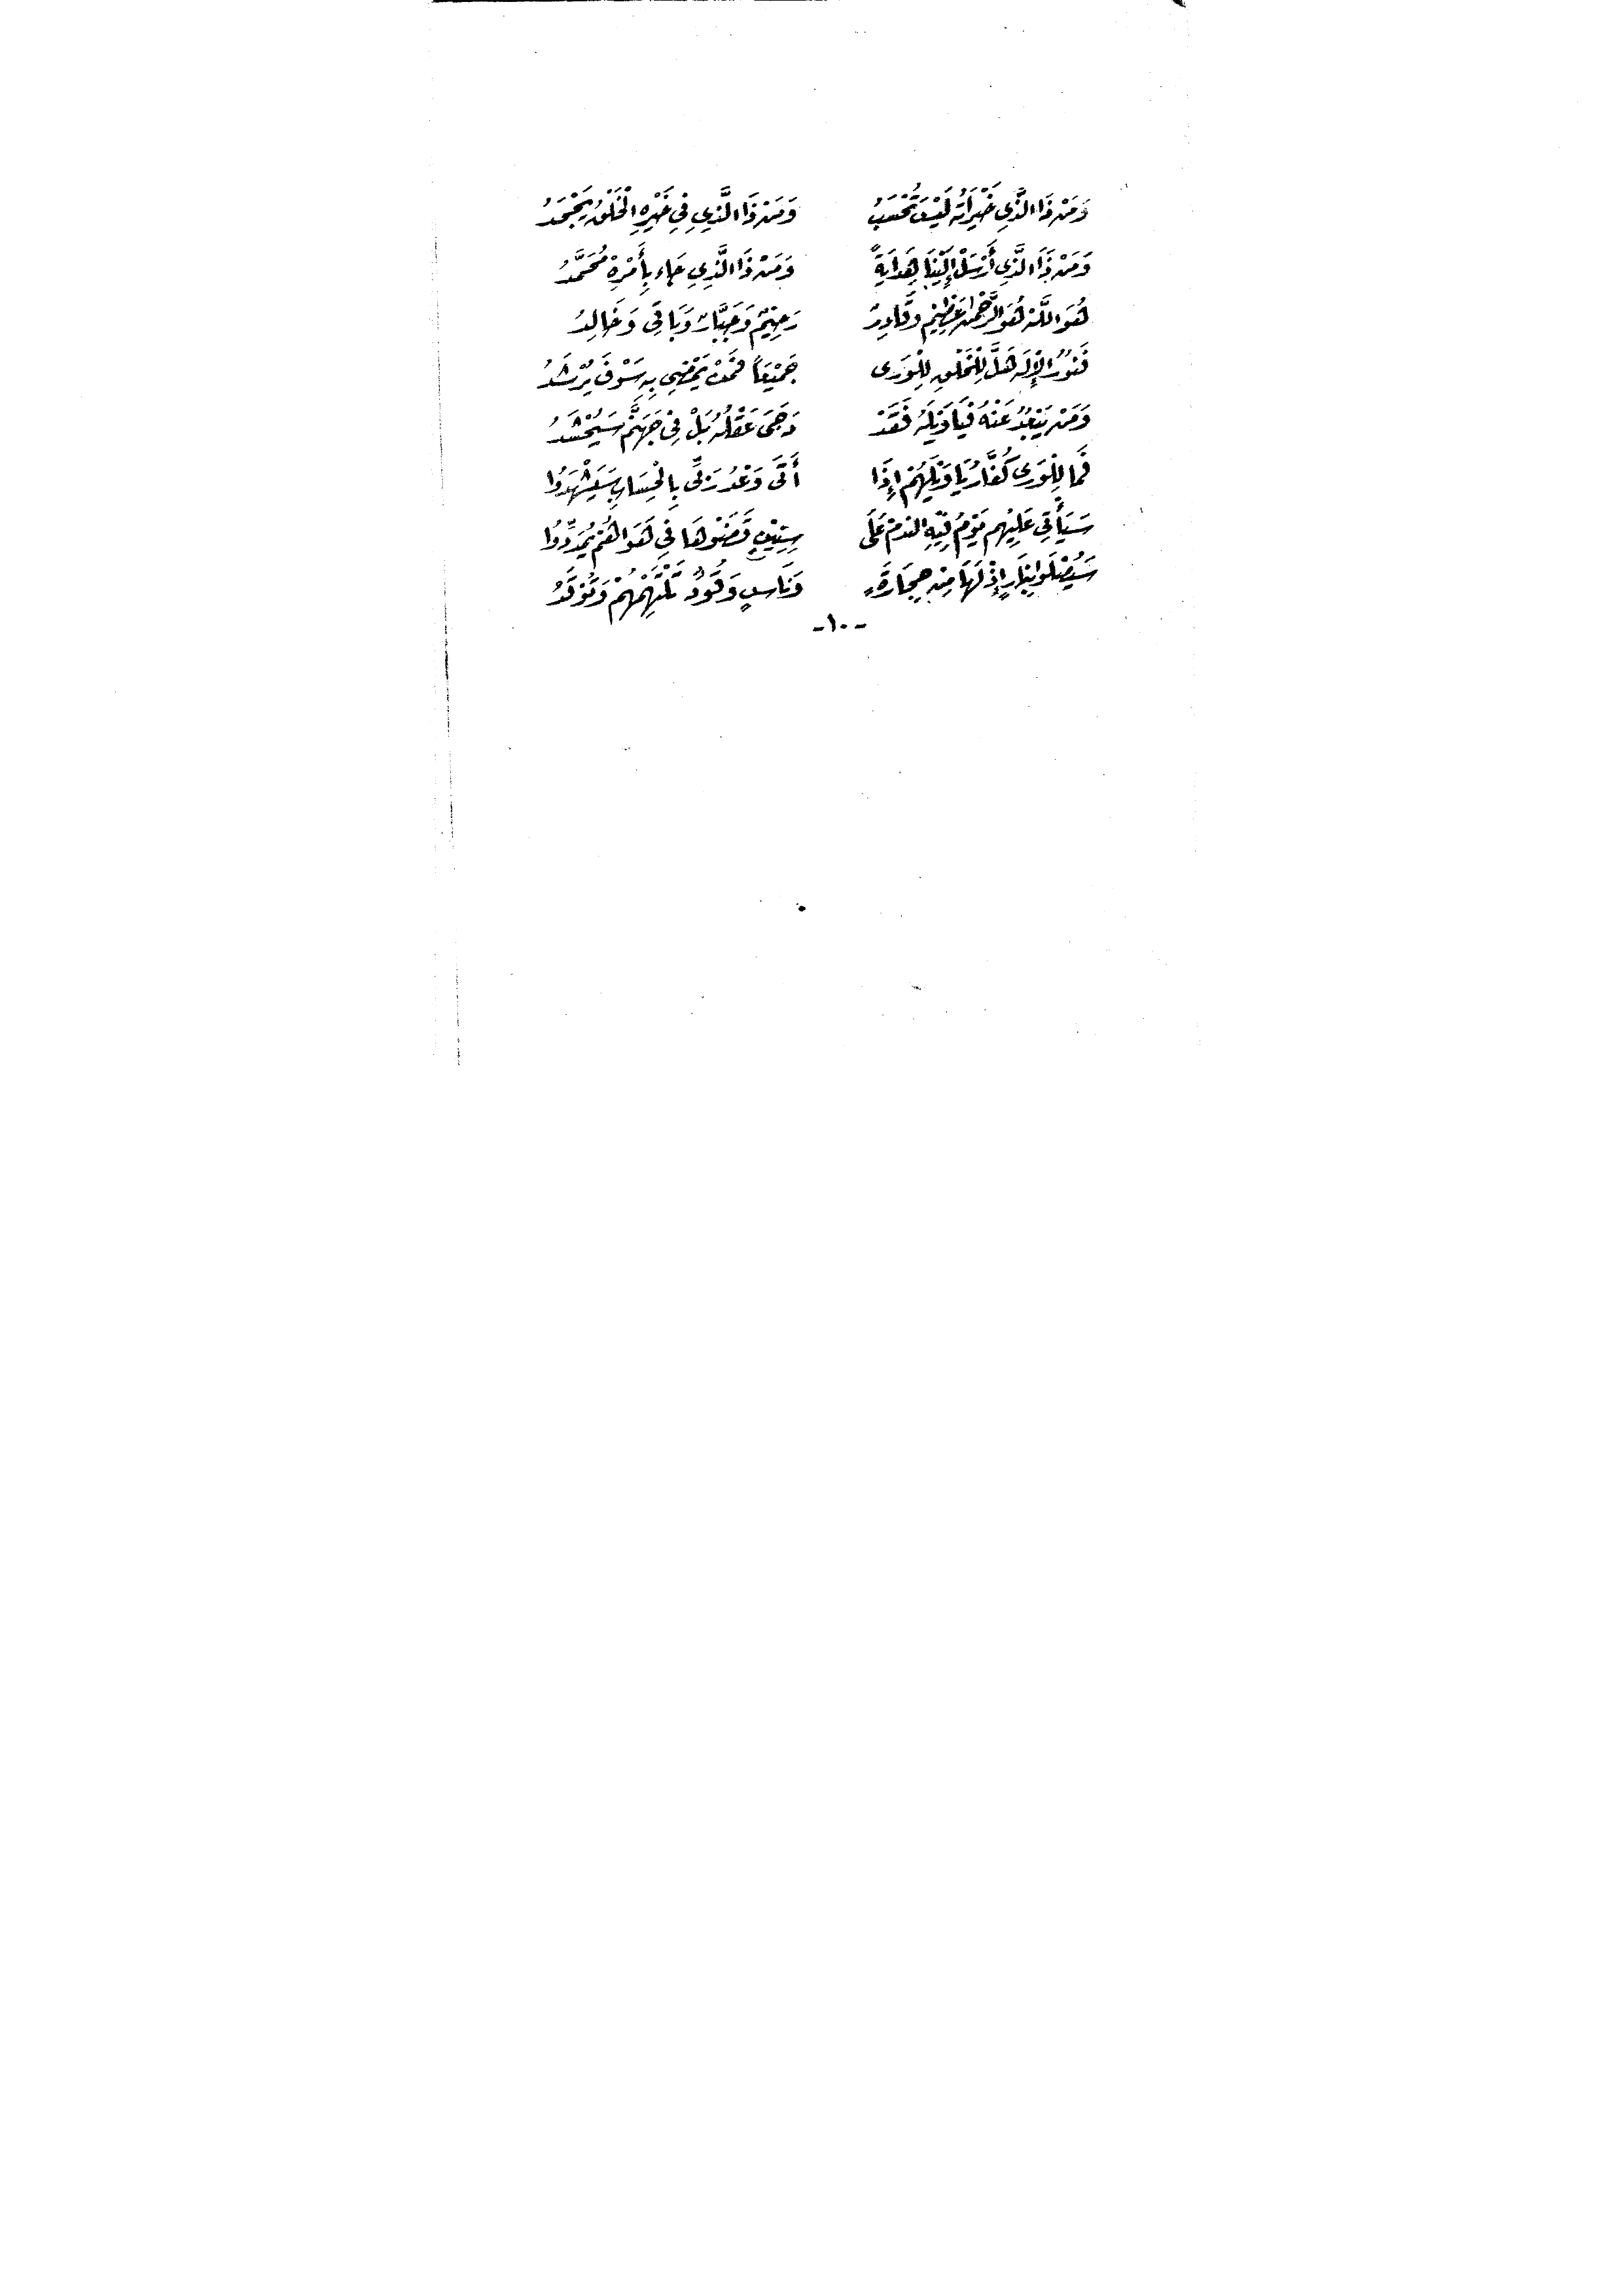 وَمَنْ ذَا الَّذِي خَيْرَاتُهُ لَيْسَ تُحْسَبُ وَمَنْ ذَا الَّذِي فِي خَيْرِهِ الْخَلْقُ يَجْحَدُ
وَمَنْ ذَا الَّذِي أَرْسَلْ إِلَيْنَا هِدَايَةً وَمَنْ ذَا الَّذِي جَاء بِأَمْرِهْ مُحَمَّدُ
هُوَ اللَّهْ هُوَ الرَّحْمٰن عَظِيْم وقَادِرٌ رَحِيْمٌ وَجَبَّارٌ وَبَاقِى وَخَالِدُ
فَنُوْرُ الْإِلَه هَلَّ لِلْخَلْقِ لِلْوَرَى جَمْيعَاً فَمَنْ يَمْضِي بِهِ سَوْفَ يُرْشَدُ
وَمَنْ يَبْعُدْ عَنْهُ فَيَا وَيْلَهُ فَقَدْ دَجَى عَقْلُهُ بَلْ فِى جَهَنَّمْ سَيُحْشَدُ
فَمَا لِلْوَرَى كُفَّارُ يَا وَيْلَهُمْ إِذَا أَتَى وَعْدُ رَبِّى بِالْحِسَابِ سَيَشْهَدُوا
سَيَأْتِى عَلَيْهِم يَوْمُ فِيْهِ الندمْ عَلَى سِنِيْنٍ قَضَوْهَا فِي هَوَاهُمْ
سَيُصْلَوا بِنَارٍ إِذْ لَهَا مِنْ حِجَارَةٍ وَنَاسٍ وَقُوْدٌ تَلْتَهِمْهُمْ وَتُوْقَدُ
-١٠-